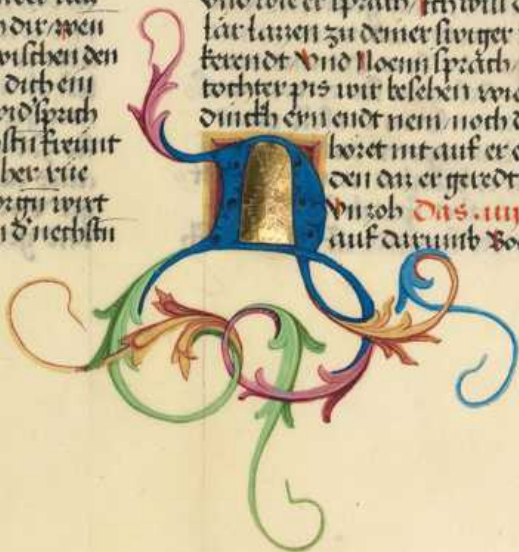 dir/wen
wischen den
dich ein
sprach
freunt
her rüe
orgn wirt
n d' nechstn
vnd wie er sprach/ Ich will
lär lazzen zu deiner swiger
kerendt Vnd Noemi sprach
tochter pis wir besehen wie
dinckh eyn endt nem/ noch d
horet nit auf er e
den daz er geredt
zoh Das .iiij
auf darumb Boo